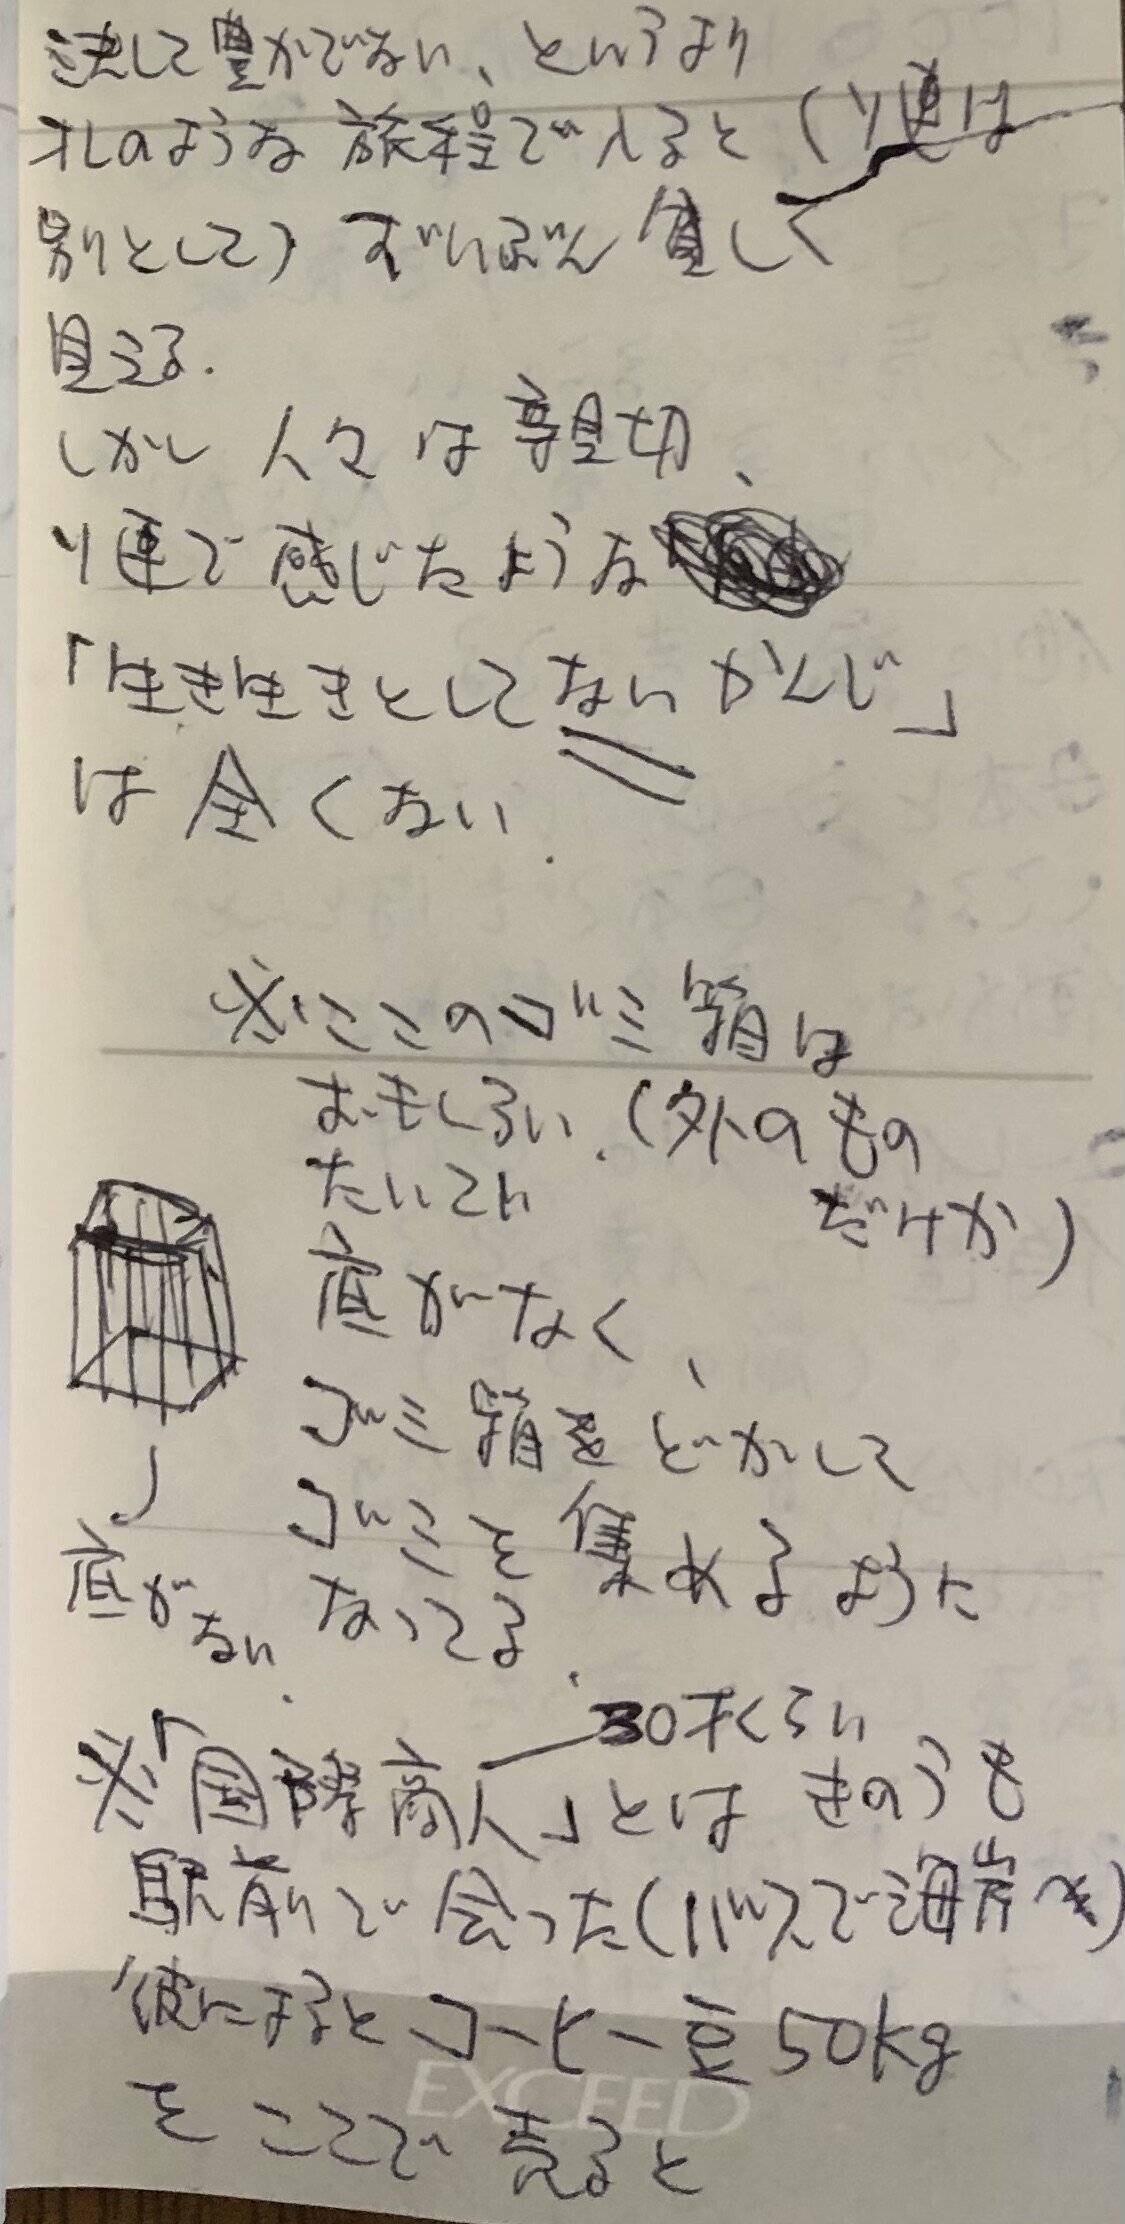 決して豊かでない、というより
オレのような旅程でくると(ソ連は
別として)ずいぶん貧しく
見える.
しかし 人々は親切、
ソ連で感じたような
「生き生きとしてないかんじ」
は全くない.
※ここのゴミ箱は
おもしろい.(外のもの
だけか)
たいてい
底がなく、
ゴミ箱をどかして
ゴミを集めるように
なってる.
底が
ない.
30才くらい
※「国際商人」とは きのうも
駅前で会った(バスで海岸へ)
彼によるとコーヒー豆50kg
をここで売ると
EXCEED